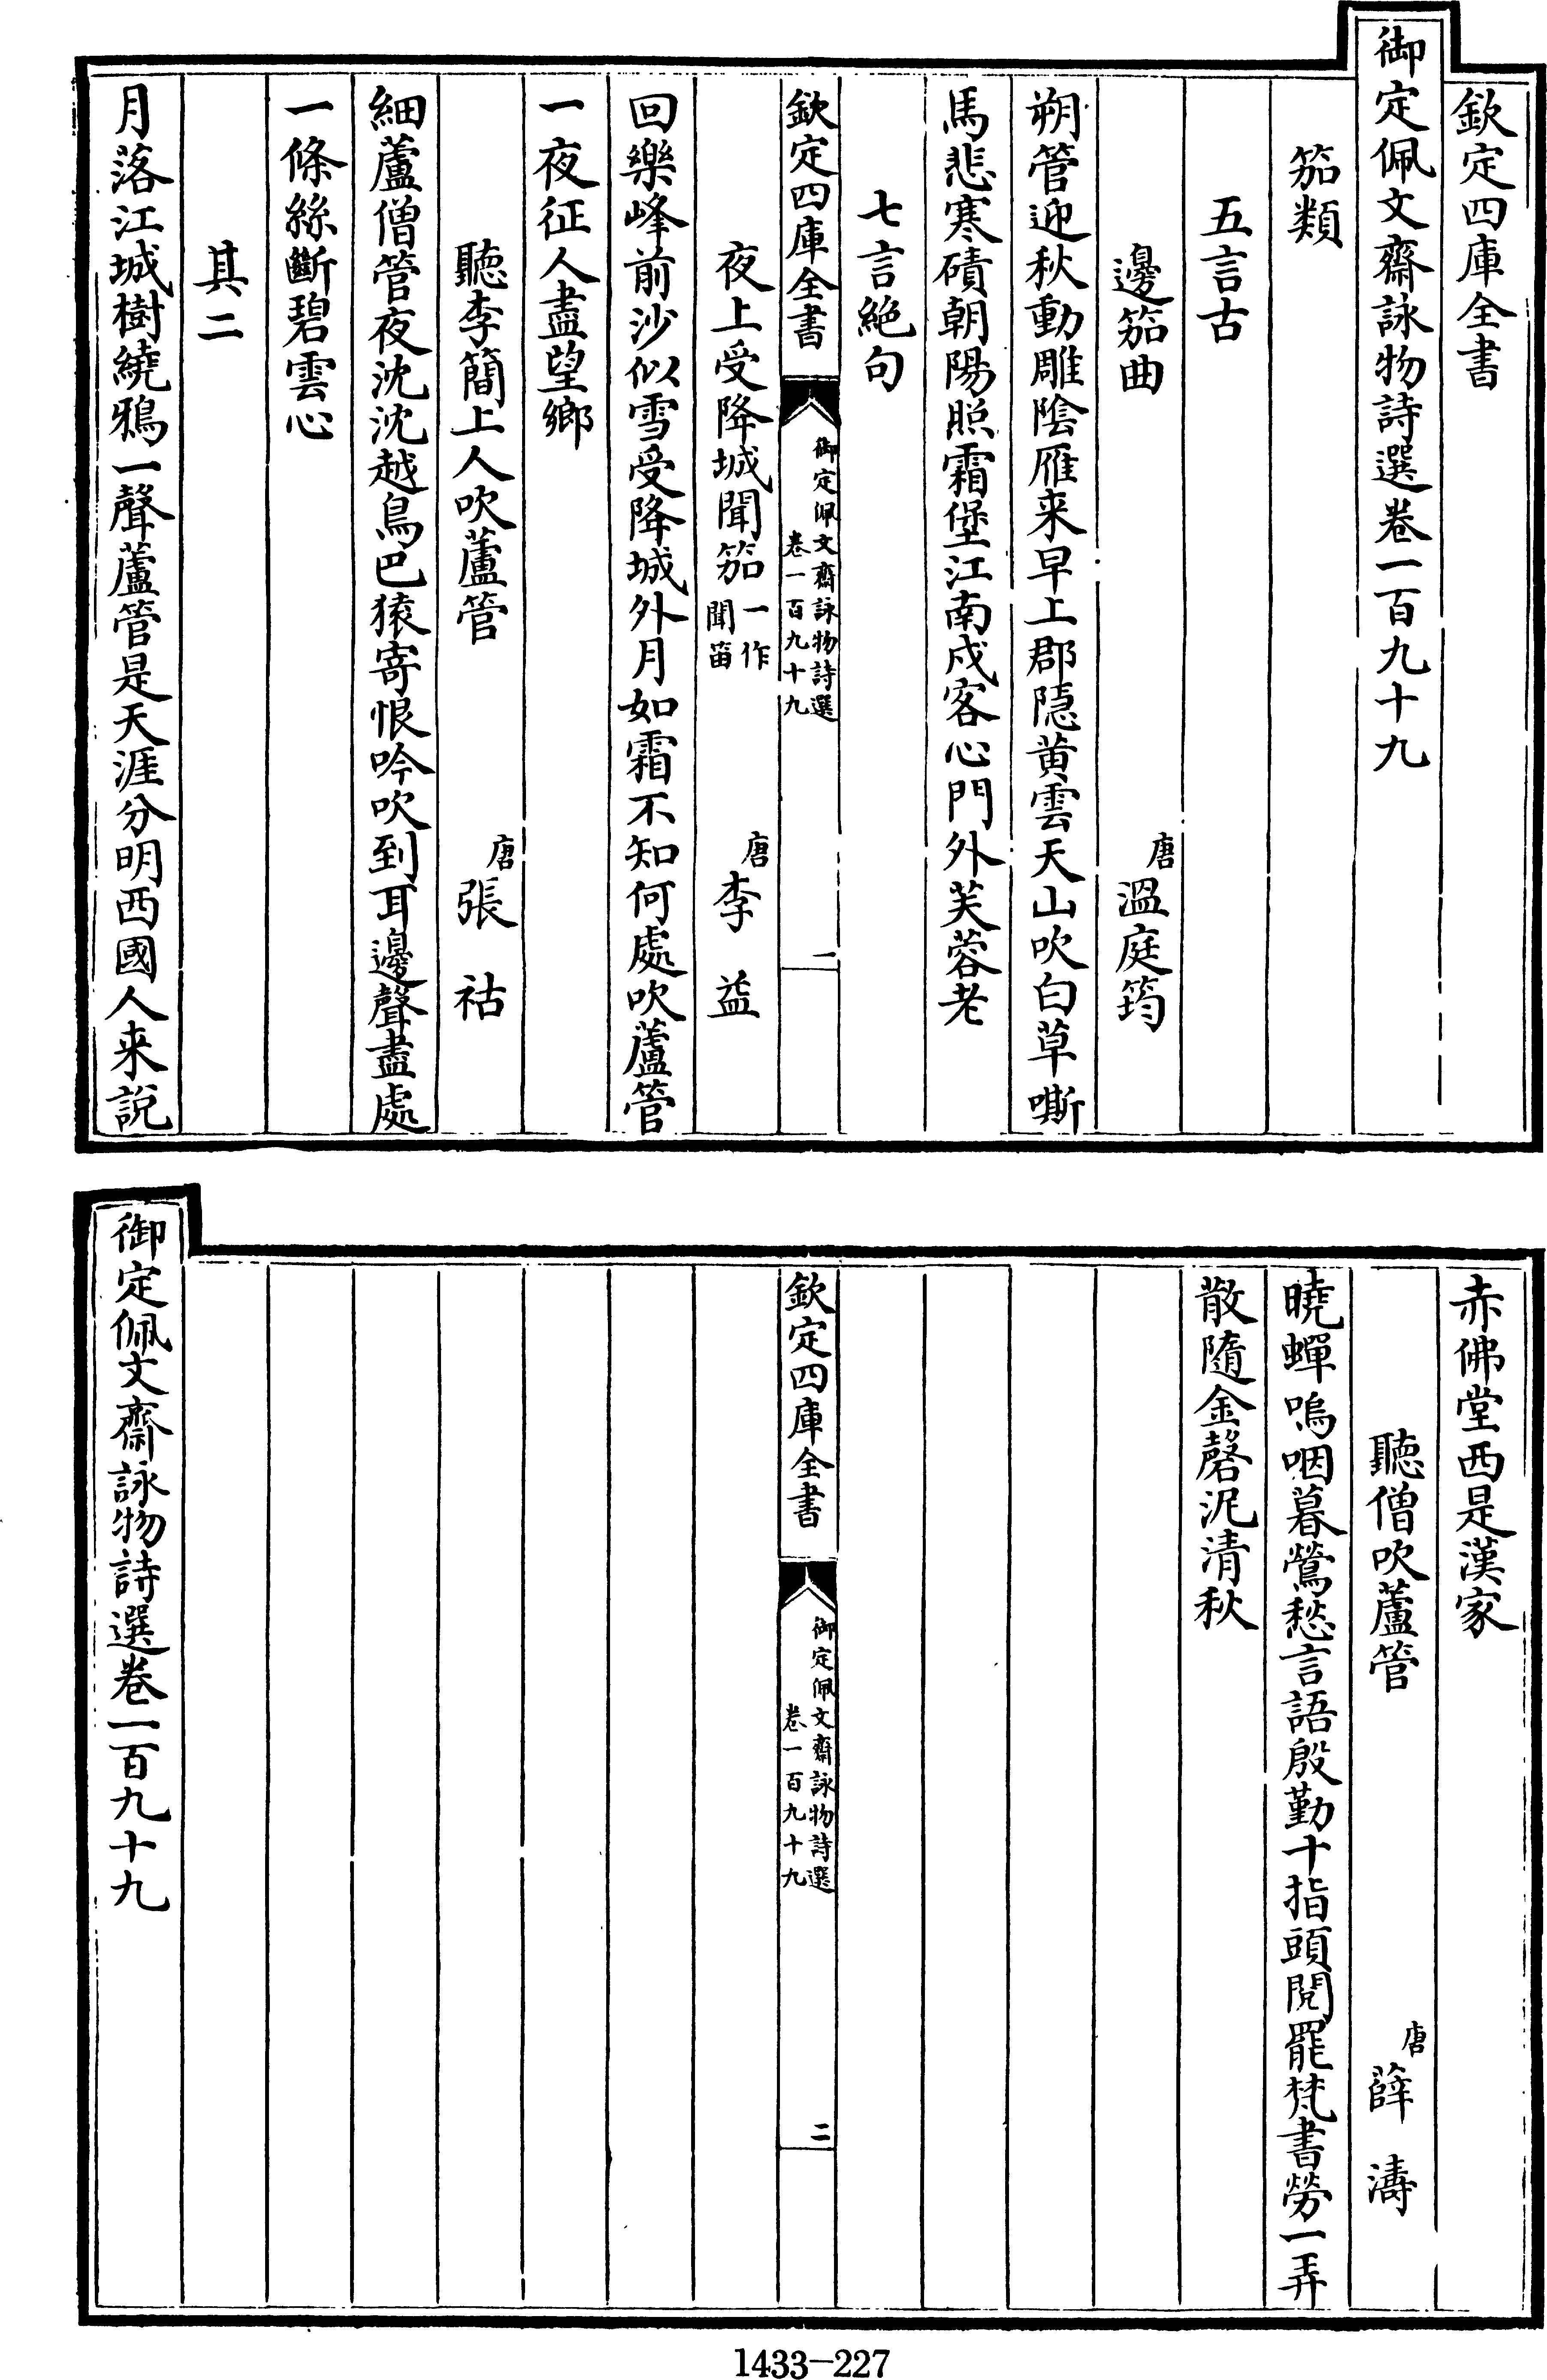 欽定四庫全書
御定佩文齋詠物詩選卷一百九十九
笳類
五言古
邊笳曲 唐溫庭筠
朔管迎秋動雕陰雁来早上郡隱黄雲天山吹白草嘶
馬悲寒磧朝陽照霜堡江南戍客心門外芙蓉老
七言絶句
欽定四庫全書 御定佩文齋詠物詩選 卷一百九十九 一
夜上受降城聞笳 一作聞笛 唐李益
回樂峰前沙似雪受降城外月如霜不知何處吹蘆管
一夜征人盡望鄉
聽李簡上人吹蘆管 唐張祜
細蘆僧管夜沈沈越鳥巴猿寄恨吟吹到耳邊聲盡處
一條絲斷碧雲心
其二
月落江城樹繞鴉一聲蘆管是天涯分明西國人来說
赤佛堂西是漢家
聽僧吹蘆管 唐薛濤
曉蟬嗚咽暮鶯愁言語殷勤十指頭閱罷梵書勞一弄
散隨金磬泥清秋
欽定四庫全書 御定佩文齋詠物詩選 卷一百九十九 二
御定佩文齋詠物詩選卷一百九十九
1433-227